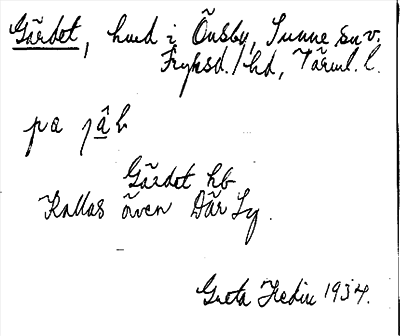 Gärdet, hmd i Önsby, Sunne sn v.
Fryksd. hd, Värml. l.
på jâḷ
Gärdet hb
Kallas även Där Sy.
Greta Hedin 1934.